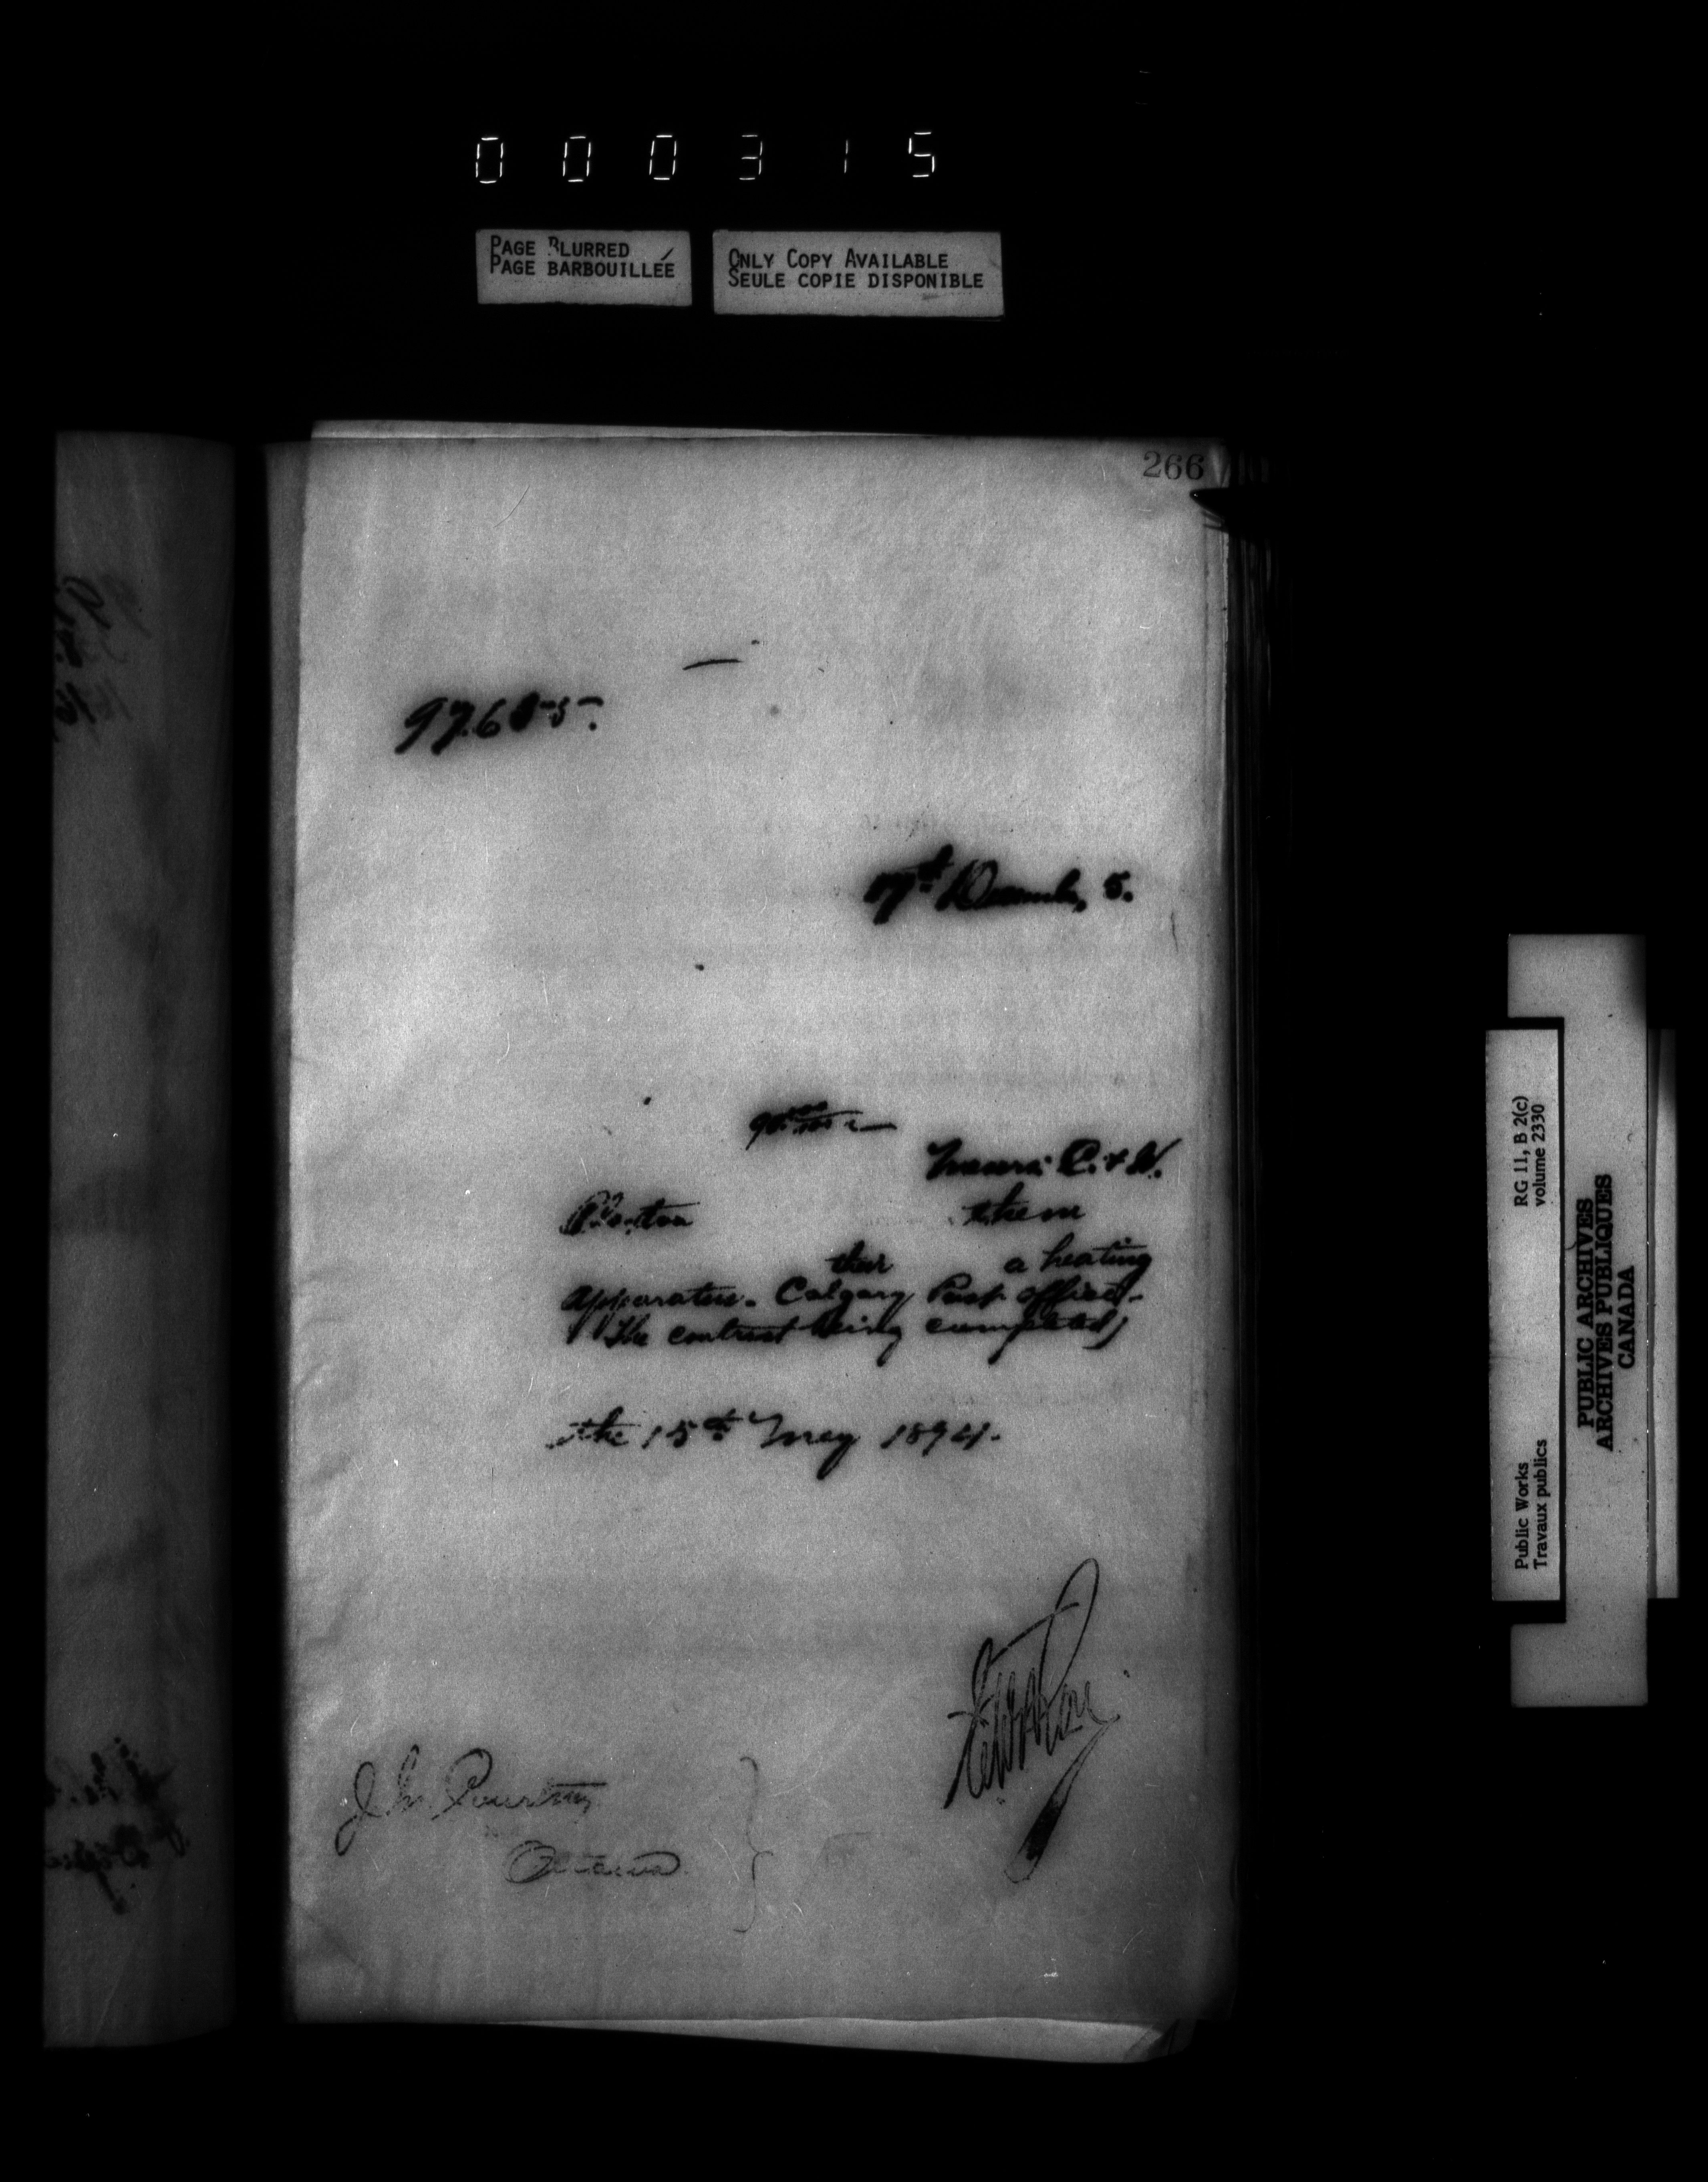 000315
PAGE BLURRED
PAGE BARBOUILLÉE
ONLY COPY AVAILABLE
SEULE COPIE DISPONIBLE
266
97655.
17th December, 5.
Messrs. C. & W.
them
their a heating
apparatus. Calgary Post office.
The contract being completed;
the 15th May 1894.
J. M. Courtney
Ottawa
RG 11, B 2(c)
volume 2330
Public Works
Travaux publics
PUBLIC ARCHIVES
ARCHIVES PUBLIQUES
CANADA